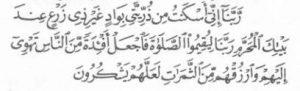 رَبَّنَا إِنِّي أَسْكَنتُ مِن ذُرِّيَّتِي بِوَادٍ غَيْرِ ذِي زَرْعٍ عِندَ
بَيْتِكَ الْمُحَرَّمِ رَبَّنَا لِيُقِيمُوا الصَّلَوٰةَ فَاجْعَلْ أَفْئِدَةً مِّنَ النَّاسِ تَهْوِي
إِلَيْهِمْ وَارْزُقْهُم مِّنَ الثَّمَرَاتِ لَعَلَّهُمْ يَشْكُرُونَ